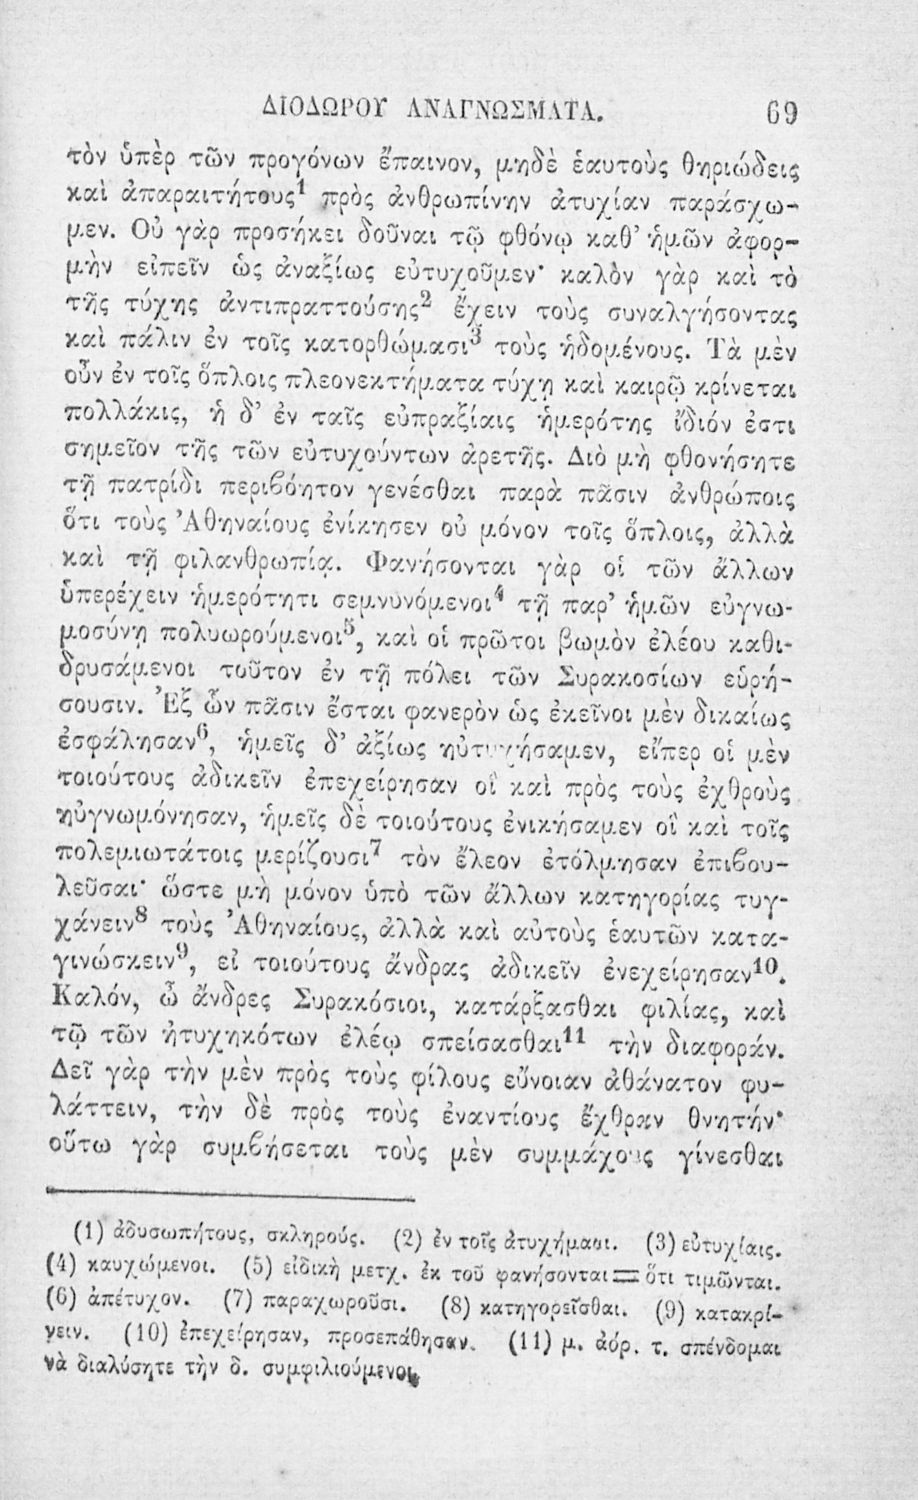 ΔΙΟΔΩΡΟΥ ΑΝΑΓΝΩΣΜΑΤΑ. 69
τὸν ὑπὲρ τῶν προγόνων ἔπαινον, μηδὲ ἑαυτοὺς θηριώδεις
καὶ ἀπαραιτήτους¹ πρὸς ἀνθρωπίνην ἀτυχίαν παράσχω-
μεν. Οὐ γὰρ προσήκει δοῦναι τῷ φθόνῳ καθ’ ἡμῶν ἀφορ-
μὴν εἰπεῖν ὡς ἀναξίως εὐτυχοῦμεν· καλὸν γὰρ καὶ τὸ
τῆς τύχης ἀντιπραττούσης² ἔχειν τοὺς συναλγήσοντας
καὶ πάλιν ἐν τοῖς κατορθώμασι³ τοὺς ἡδομένους. Τὰ μὲν
οὖν ἐν τοῖς ὅπλοις πλεονεκτήματα τύχῃ καὶ καιρῷ κρίνεται
πολλάκις, ἡ δ’ ἐν ταῖς εὐπραξίαις ἡμερότης ἴδιόν ἐστι
σημεῖον τῆς τῶν εὐτυχούντων ἀρετῆς. Διὸ μὴ φθονήσητε
τῇ πατρίδι περιβόητον γενέσθαι παρὰ πᾶσιν ἀνθρώποις
ὅτι τοὺς Ἀθηναίους ἐνίκησεν οὐ μόνον τοῖς ὅπλοις, ἀλλὰ
καὶ τῇ φιλανθρωπίᾳ. Φανήσονται γὰρ οἱ τῶν ἄλλων
ὑπερέχειν ἡμερότητι σεμνυνόμενοι⁴ τῇ παρ’ ἡμῶν εὐγνω-
μοσύνῃ πολυωρούμενοι⁵, καὶ οἱ πρῶτοι βωμὸν ἐλέου καθι-
δρυσάμενοι τοῦτον ἐν τῇ πόλει τῶν Συρακοσίων εὑρή-
σουσιν. Ἐξ ὧν πᾶσιν ἔσται φανερὸν ὡς ἐκεῖνοι μὲν δικαίως
ἐσφάλησαν⁶, ἡμεῖς δ’ ἀξίως ηὐτυχήσαμεν, εἴπερ οἱ μὲν
τοιούτους ἀδικεῖν ἐπεχείρησαν οἳ καὶ πρὸς τοὺς ἐχθροὺς
ηὐγνωμόνησαν, ἡμεῖς δὲ τοιούτους ἐνικήσαμεν οἳ καὶ τοῖς
πολεμιωτάτοις μερίζουσι⁷ τὸν ἔλεον ἐτόλμησαν ἐπιβου-
λεῦσαι· ὥστε μὴ μόνον ὑπὸ τῶν ἄλλων κατηγορίας τυγ-
χάνειν⁸ τοὺς Ἀθηναίους, ἀλλὰ καὶ αὐτοὺς ἑαυτῶν κατα-
γινώσκειν⁹, εἰ τοιούτους ἄνδρας ἀδικεῖν ἐνεχείρησαν¹⁰.
Καλόν, ὦ ἄνδρες Συρακόσιοι, κατάρξασθαι φιλίας, καὶ
τῷ τῶν ἠτυχηκότων ἐλέῳ σπείσασθαι¹¹ τὴν διαφοράν.
Δεῖ γὰρ τὴν μὲν πρὸς τοὺς φίλους εὔνοιαν ἀθάνατον φυ-
λάττειν, τὴν δὲ πρὸς τοὺς ἐναντίους ἔχθραν θνητήν·
οὕτω γὰρ συμβήσεται τοὺς μὲν συμμάχους γίνεσθαι
(1) ἀδυσωπήτους, σκληρούς. (2) ἐν τοῖς ἀτυχήμασι. (3) εὐτυχίαις.
(4) καυχώμενοι. (5) εἰδικὴ μετχ. ἐκ τοῦ φανήσονται = ὅτι τιμῶνται.
(6) ἀπέτυχον. (7) παραχωροῦσι. (8) κατηγορεῖσθαι. (9) κατακρί-
νειν. (10) ἐπεχείρησαν, προσεπάθησαν. (11) μ. ἀόρ. τ. σπένδομαι
νὰ διαλύσητε τὴν δ. συμφιλιούμενοι